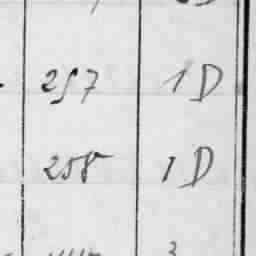 257 1 D
258 1 D